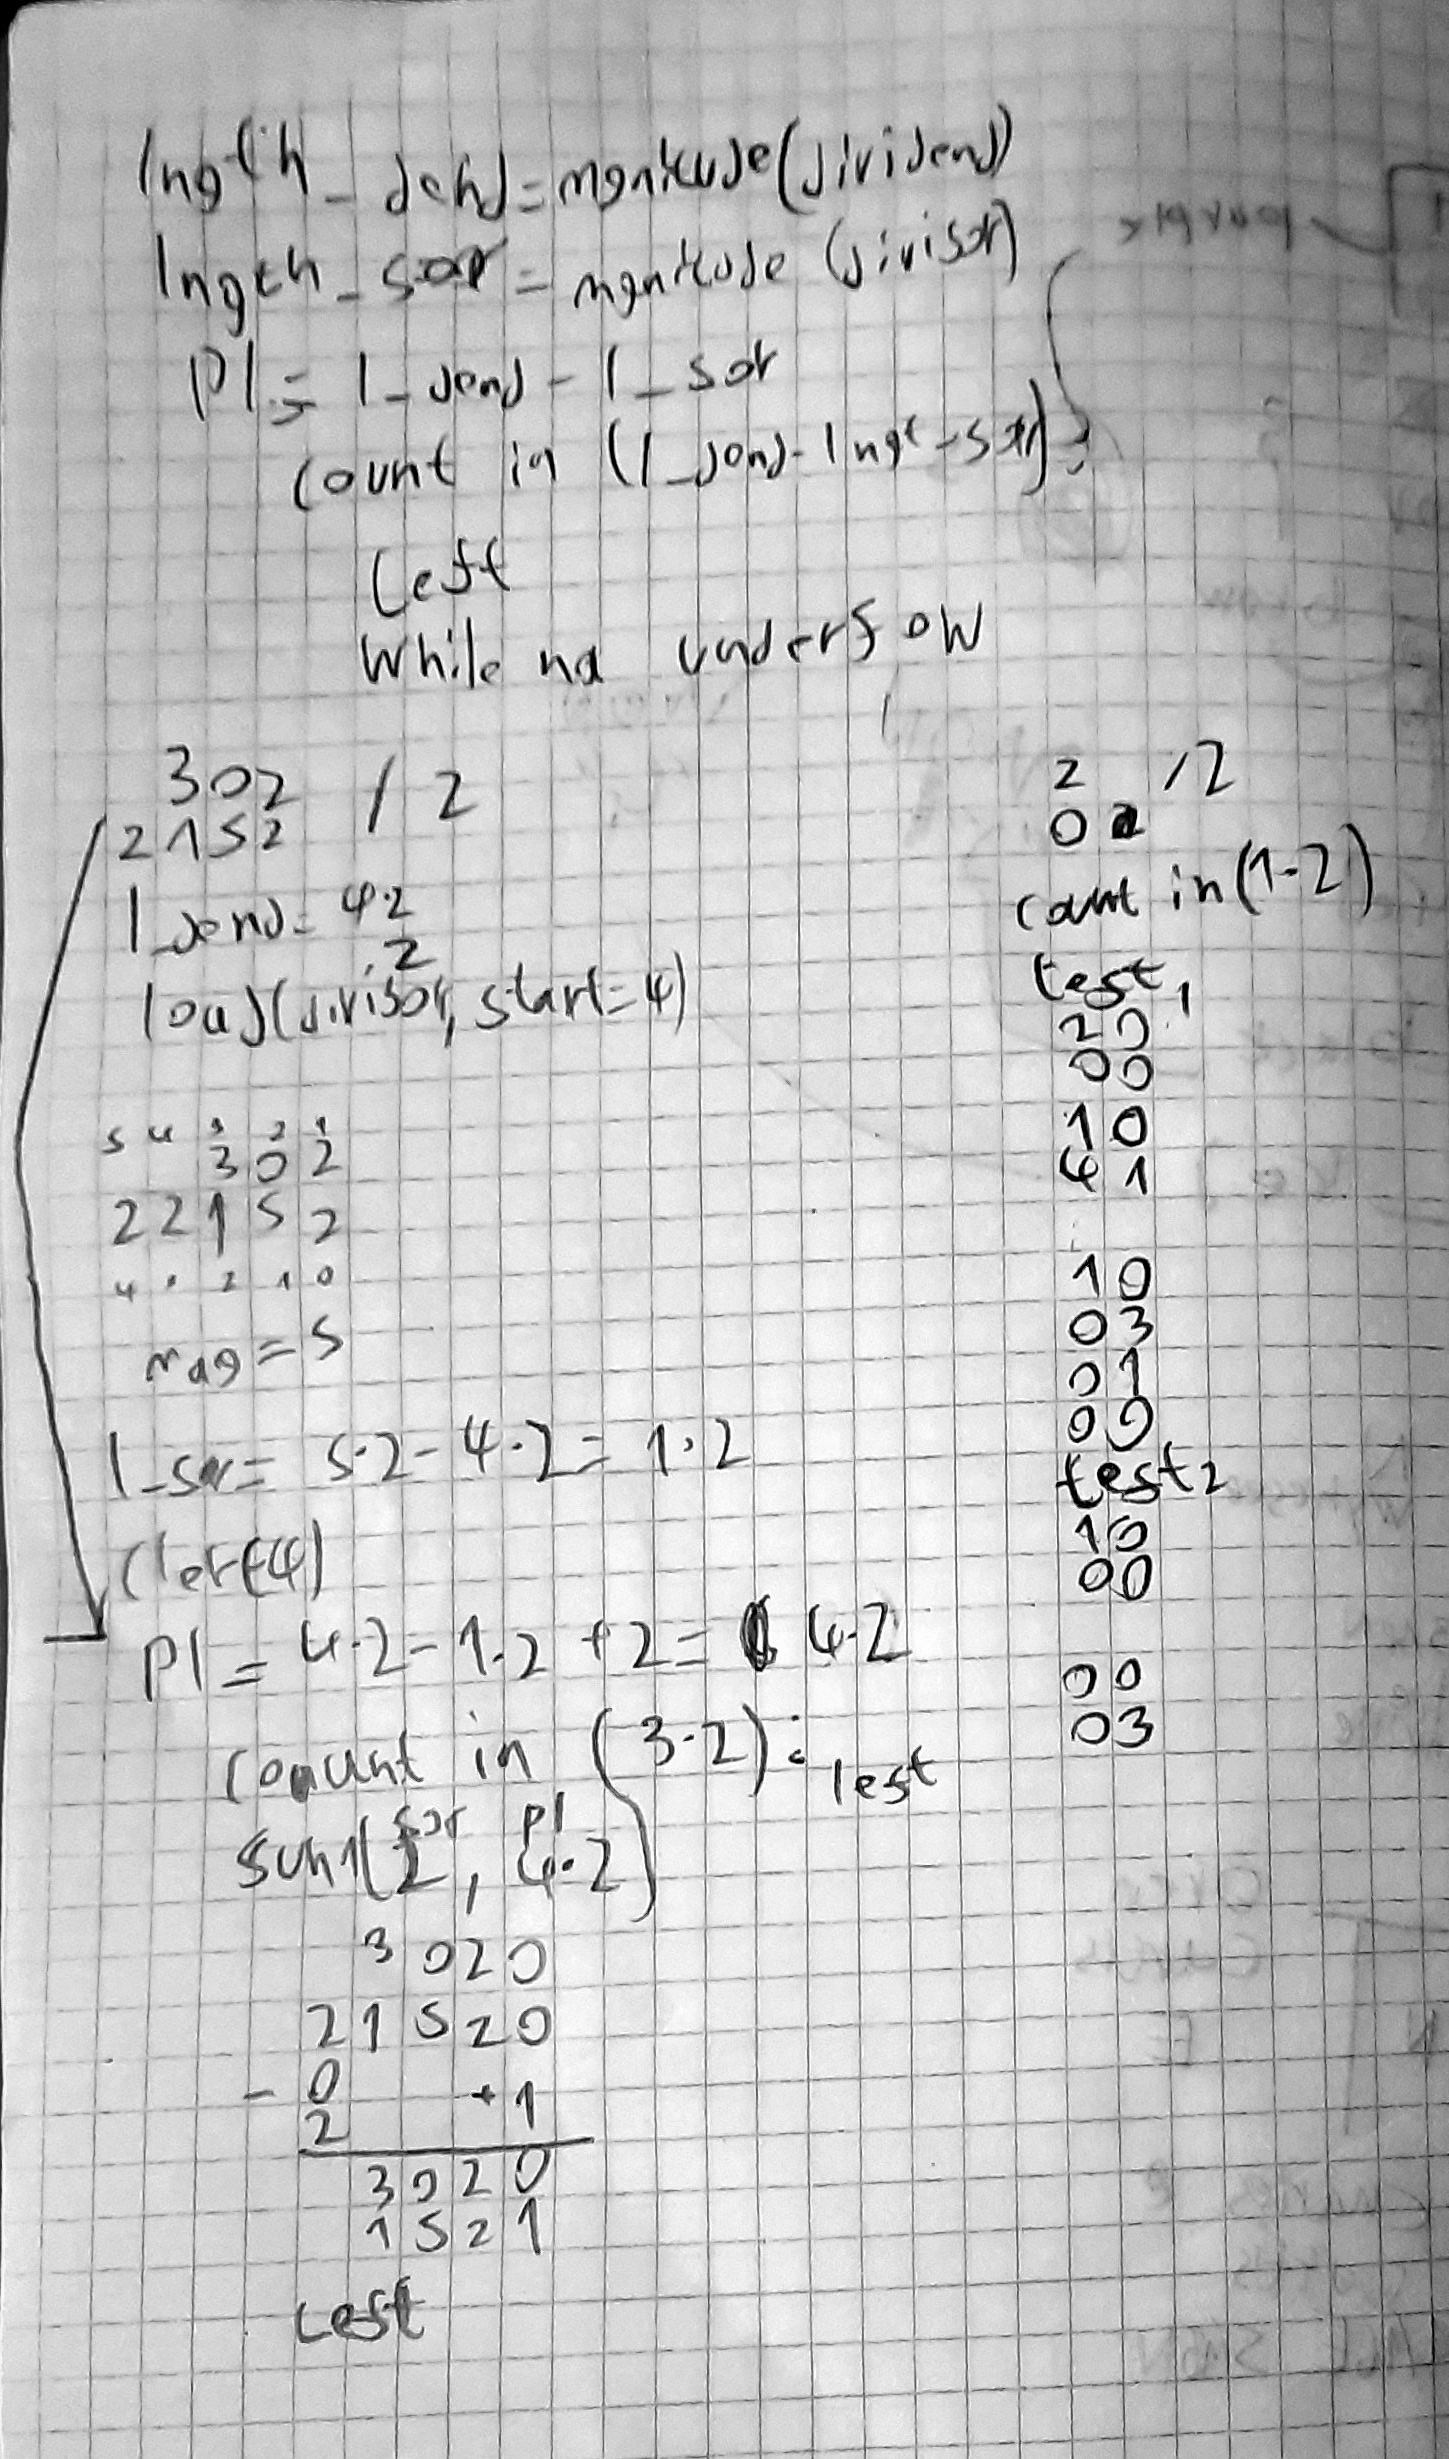 lngth_dend=mgnitude(dividend)
lngth_sor = mgnitude (divisor)
Pl = l_dend - l_sor
count in (l_dend-lngt_sor):
left
while no underfow
302 / 2
2152
l_dend= 4·2
2
load(divisor, start=4)
5 4 3 2 1
3 0 2
2 2 1 5 2
4 3 2 1 0
mag=5
l_sor= 5·2-4·2=1·2
Pl = 4·2-1·2 +2= 4·2
count in (3·2):
left
sor pl
2, 4·2
3 0 2 0
2 1 5 2 0
- 0 +1
2
3 0 2 0
1 5 2 1
left
2 /2
0
count in(1·2)
test 1
2 0
0 0
1 0
4 1
1 0
0 3
0 1
0 0
test 2
1 0
0 0
0 0
0 3